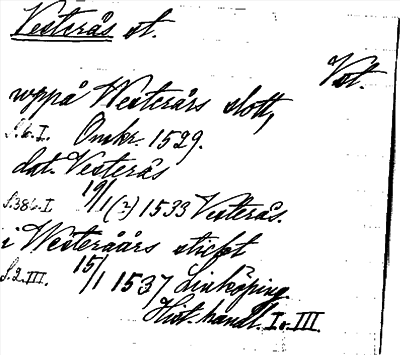 Vesterås st.
Vst.
uppå Westerårs slott,
S. 6. I. Omkr. 1529.
dat. Vesterås
S. 386. I 19/1 (?) 1533 Vesterås.
i Westeråårs sticht
S. 2. III. 15/1 1537 Linköping.
Hist. handl. I o. III.